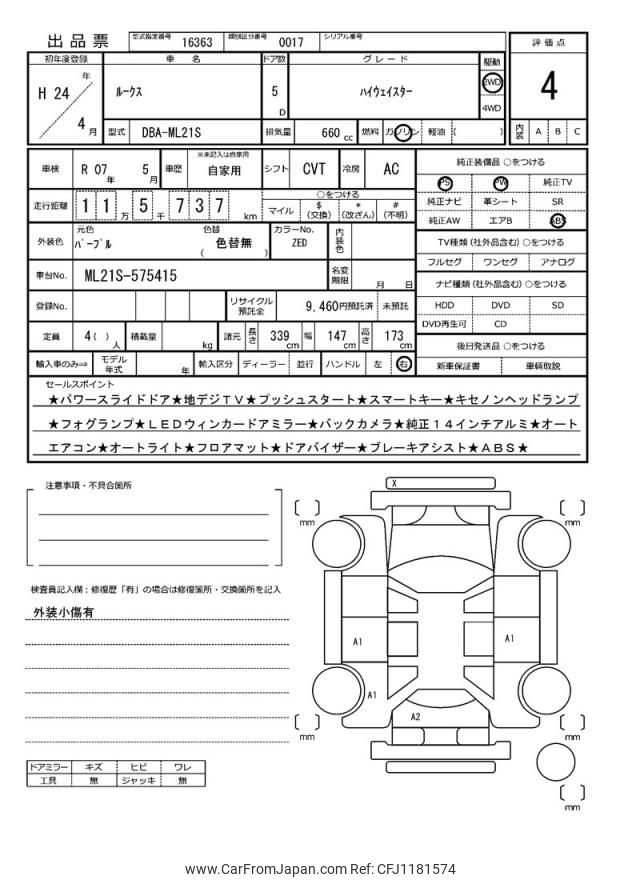 出品票 型式指定番号 16363 類別区分番号 0017 シリアル番号
初年度登録 車 名 ドア数 グレード 駆動 評価点
H 24 年 4 月 ルークス 5 D ハイウェイスター 2WD 4WD 4
型式 DBA-ML21S 排気量 660 cc 燃料 ガソリン 軽油 ( ) 内装 A B C
車検 R 07 年 5 月 車歴 ※未記入は自家用 自家用 シフト CVT 冷房 AC
走行距離 1 1 万 5 千 7 3 7 km ○をつける マイル $(交換) *(改ざん) #(不明)
外装色 元色 パープル 色替 ( 色替無 ) カラーNo. ZED 内装色
車台No. ML21S-575415 名変期限 月 日
登録No. リサイクル預託金 9,460円預託済 未預託
定員 4( ) 人 積載量 kg 諸元 長さ 339 cm 幅 147 cm 高さ 173 cm
輸入車のみ⇒ モデル年式 年 輸入区分 ディーラー 並行 ハンドル 左 右
純正装備品 ○をつける
PS PW 純正TV
純正ナビ 革シート SR
純正AW エアB ABS
TV種類(社外品含む)○をつける
フルセグ ワンセグ アナログ
ナビ種類(社外品含む)○をつける
HDD DVD SD
DVD再生可 CD
後日発送品 ○をつける
新車保証書 車輌取説
セールスポイント
★パワースライドドア★地デジTV★プッシュスタート★スマートキー★キセノンヘッドランプ
★フォグランプ★LEDウィンカードアミラー★バックカメラ★純正14インチアルミ★オート
エアコン★オートライト★フロアマット★ドアバイザー★ブレーキアシスト★ABS★
注意事項・不具合箇所
検査員記入欄：修復歴「有」の場合は修復箇所・交換箇所を記入
外装小傷有
ドアミラー キズ ヒビ ワレ
工具 無 ジャッキ 無
X
[ ] mm
[ ] mm
A1
A1
A1
A2
[ ] mm
[ ] mm
[ ] mm
www.CarFromJapan.com Ref: CFJ1181574